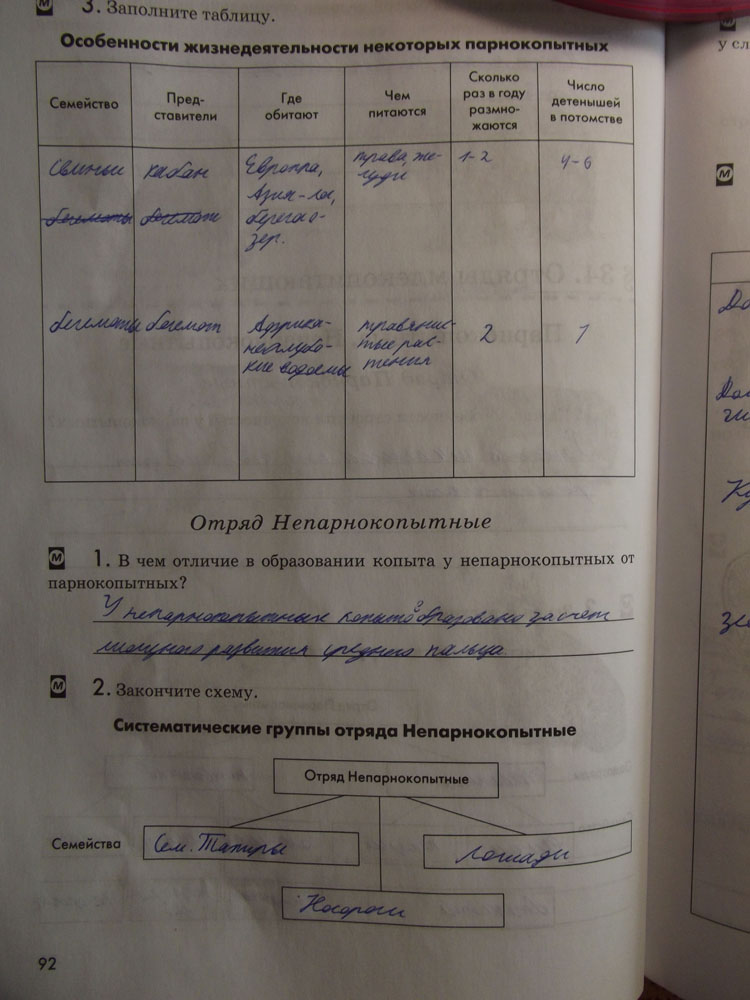 3. Заполните таблицу.
Особенности жизнедеятельности некоторых парнокопытных
Семейство
Пред-
ставители
Где
обитают
Чем
питаются
Сколько
раз в году
размно-
жаются
Число
детенышей
в потомстве
свиньи
кабан
Европа,
Азия-ле,
берега о-
зер.
трава, же-
луди
1-2
4-6
бегемоты
бегемот
бегемоты
бегемот
Африка-
неглубо-
кие водоемы
травянис-
тые рас-
тения
2
1
Отряд Непарнокопытные
М 1. В чем отличие в образовании копыта у непарнокопытных от
парнокопытных?
У непарнокопытных копыто образовано за счет
мощного развития среднего пальца
М 2. Закончите схему.
Систематические группы отряда Непарнокопытные
Отряд Непарнокопытные
Семейства
Сем. Тапиры
Лошади
Носороги
92
у сл
М